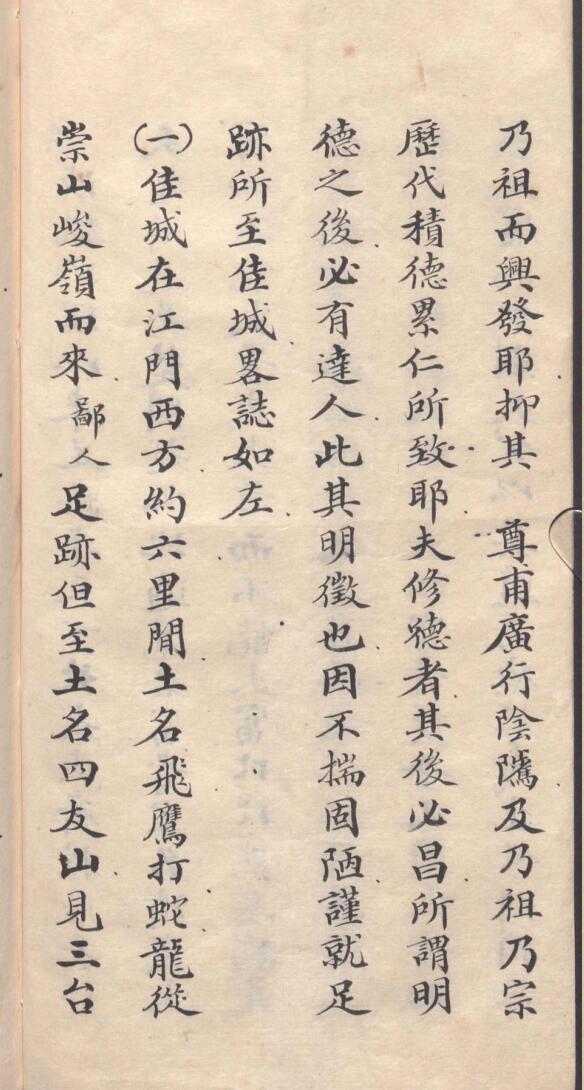 乃祖而興發耶抑其　尊甫廣行陰隲及乃祖乃宗
歷代積德累仁所致耶夫修德者其後必昌所謂明
德之後必有達人此其明徵也因不揣固陋謹就足
跡所至佳城畧誌如左
(一)佳城在江門西方約六里閒土名飛鷹打蛇龍從
崇山峻嶺而來鄙人足跡但至土名四友山見三台